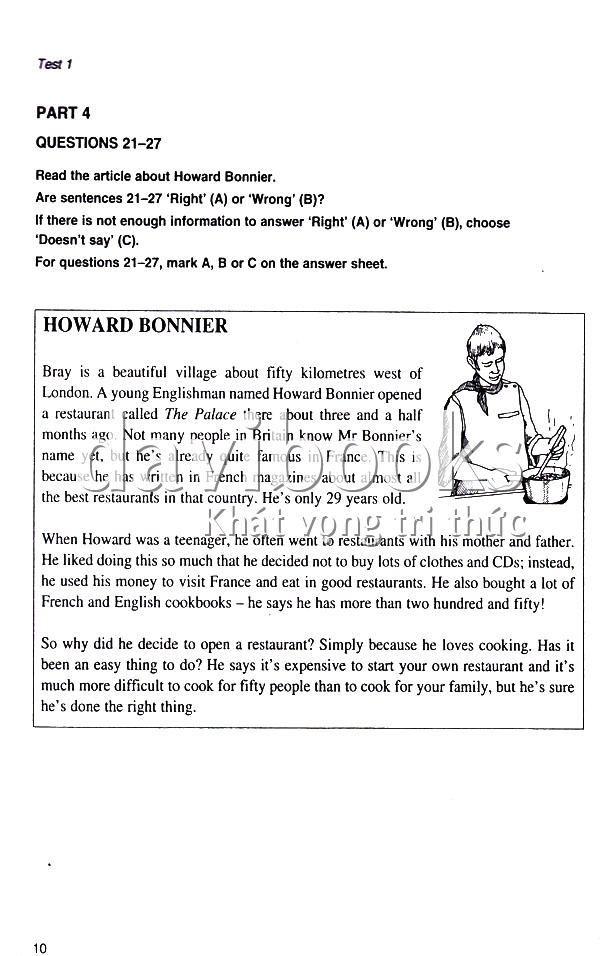 Test 1
PART 4
QUESTIONS 21–27
Read the article about Howard Bonnier.
Are sentences 21–27 ‘Right’ (A) or ‘Wrong’ (B)?
If there is not enough information to answer ‘Right’ (A) or ‘Wrong’ (B), choose
‘Doesn’t say’ (C).
For questions 21–27, mark A, B or C on the answer sheet.
HOWARD BONNIER
Bray is a beautiful village about fifty kilometres west of
London. A young Englishman named Howard Bonnier opened
a restaurant called The Palace there about three and a half
months ago. Not many people in Britain know Mr Bonnier’s
name yet, but he’s already quite famous in France. This is
because he has written in French magazines about almost all
the best restaurants in that country. He’s only 29 years old.
davibooks
Khát vọng tri thức
When Howard was a teenager, he often went to restaurants with his mother and father.
He liked doing this so much that he decided not to buy lots of clothes and CDs; instead,
he used his money to visit France and eat in good restaurants. He also bought a lot of
French and English cookbooks – he says he has more than two hundred and fifty!
So why did he decide to open a restaurant? Simply because he loves cooking. Has it
been an easy thing to do? He says it’s expensive to start your own restaurant and it’s
much more difficult to cook for fifty people than to cook for your family, but he’s sure
he’s done the right thing.
10